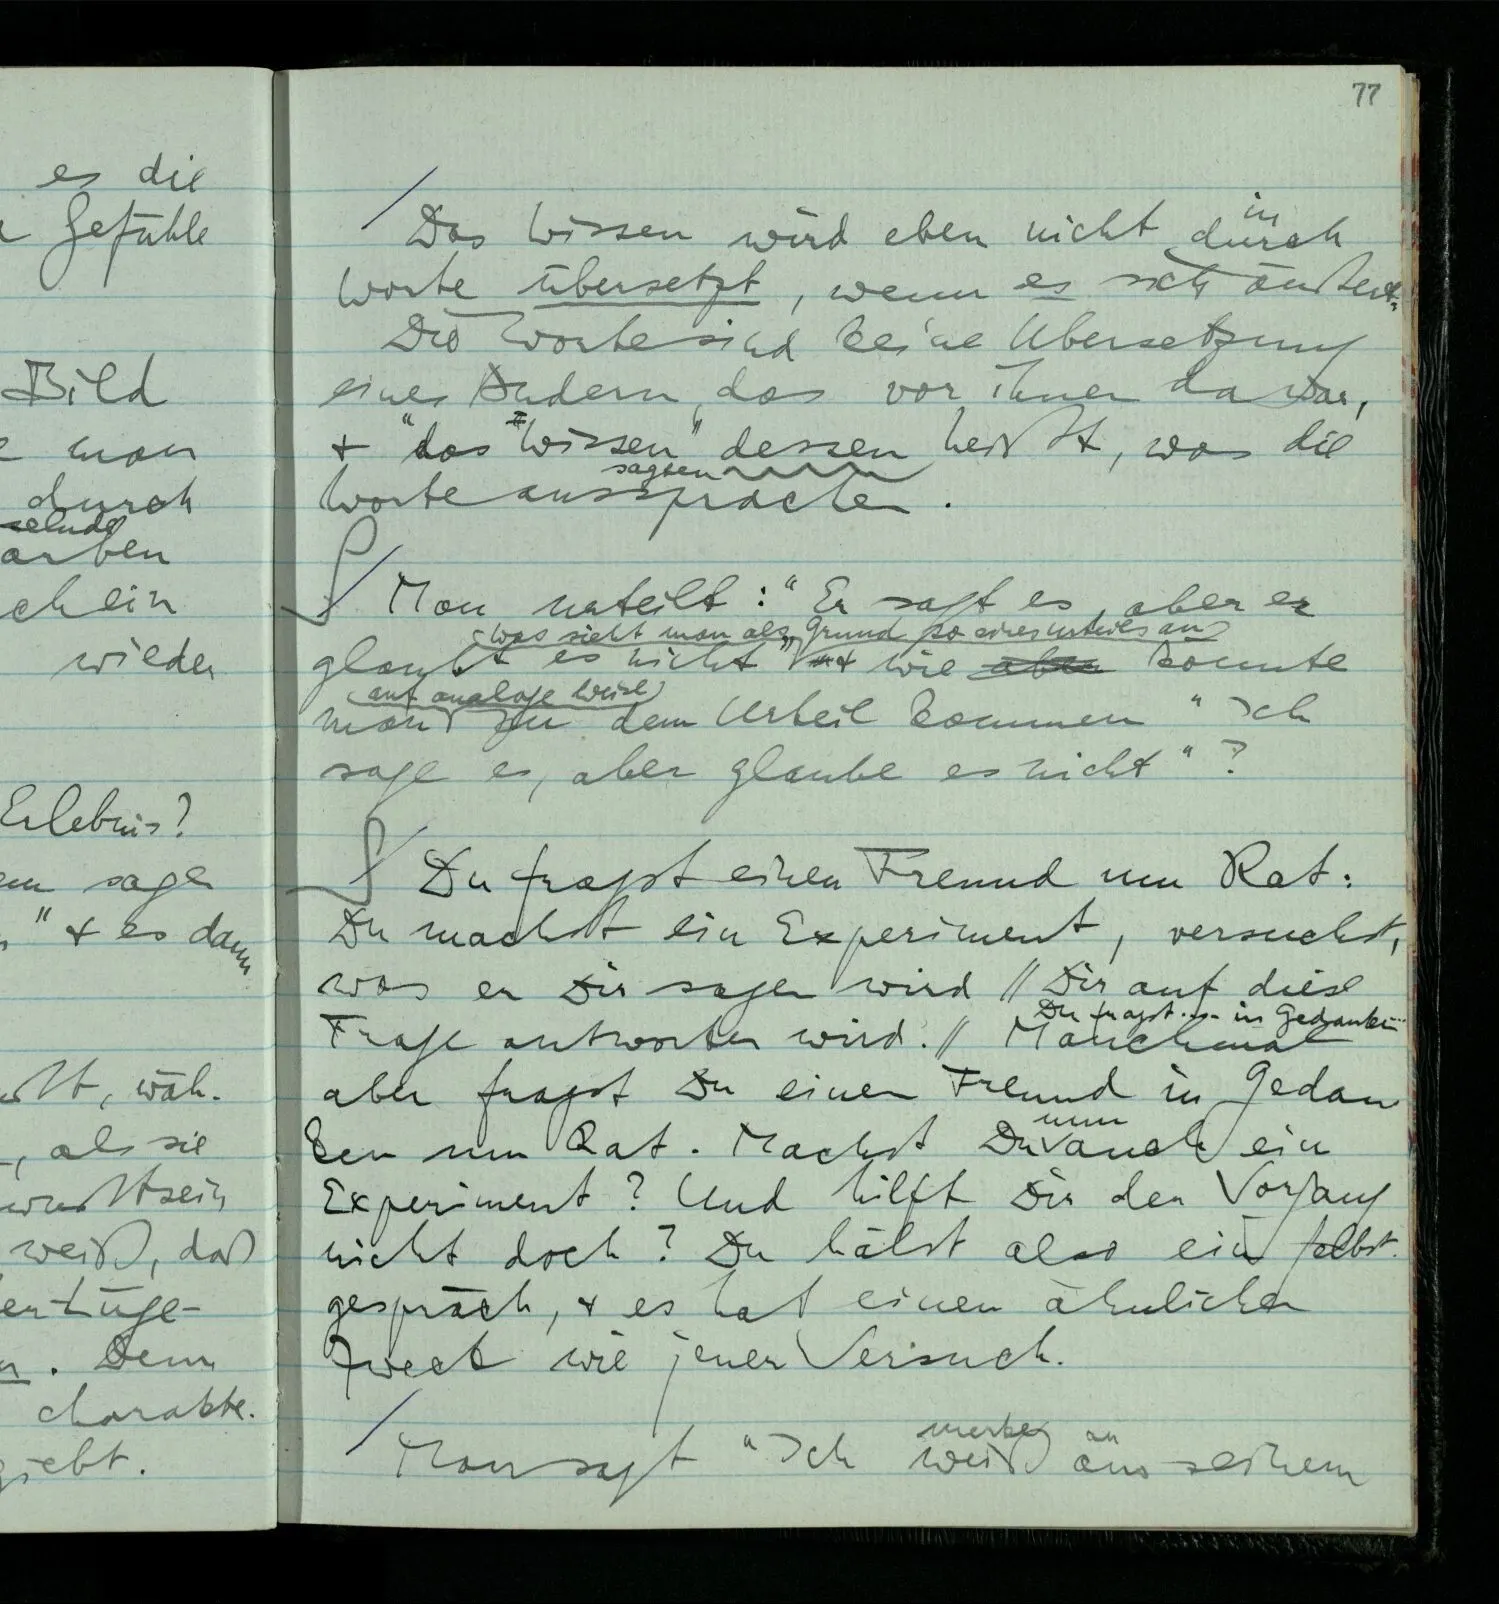 es die
Gefühle
Bild
man
durch
selnde
arben
ch ein
wieder
Erlebnis?
sage
" & es dann
, wäh-
, als sie
wußtsein
weiß, daß
. Denn
charakte-
giebt.
77
in
Das Wissen wird eben nicht durch
Worte übersetzt, wenn es sich äußert.
Die Worte sind keine Übersetzung
eines Andern, das vor ihnen da war,
& "das Wissen" dessen heißt, was die
sagten
Worte aussprachen.
Man urteilt: "Er sagt es, aber er
was sieht man als Grund so eines Urteils an
glaubt es nicht" & wie aber könnte
(auf analoge Weise)
man zu dem Urteil kommen "Ich
sage es, aber glaube es nicht"?
Du fragst einen Freund um Rat:
Du machst ein Experiment, versuchst,
was er Dir sagen wird // Dir auf diese
Du fragst … in Gedanken …
Frage antworten wird. // Manchmal
aber fragst Du einen Freund in Gedan
ken um Rat. Machst Du auch ein
nun
Experiment? Und hilft Dir der Vorgang
nicht doch? Du hälst also ein Selbst-
gespräch, & es hat einen ähnlichen
Zweck wie jener Versuch.
merke an
Man sagt "Ich weiß aus seinem